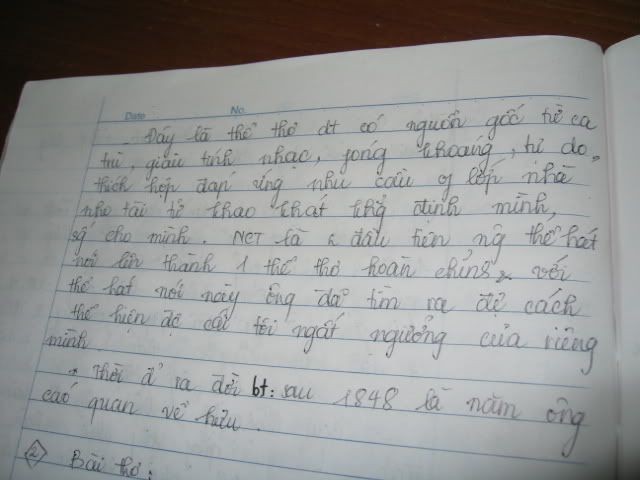 Date No.
- Đây là thể thơ dt có nguồn gốc từ ca
trù, giàu tính nhạc, fóng khoáng, tự do,
thích hợp đáp ứng nhu cầu of lớp nhà
nho tài tử khao khát khẳg định mình,
số cho mình. NCT là đầu tiên ng thể hát
nói lên thành 1 thể thơ hoàn chỉnh với
thể hát nói này ông đã tìm ra đc cách
thể hiện đc cái tôi ngất ngưởng của riêng
mình
* Thời đ ra đời bt: sau 1848 là năm ông
cáo quan về hưu.
2 Bài thơ: